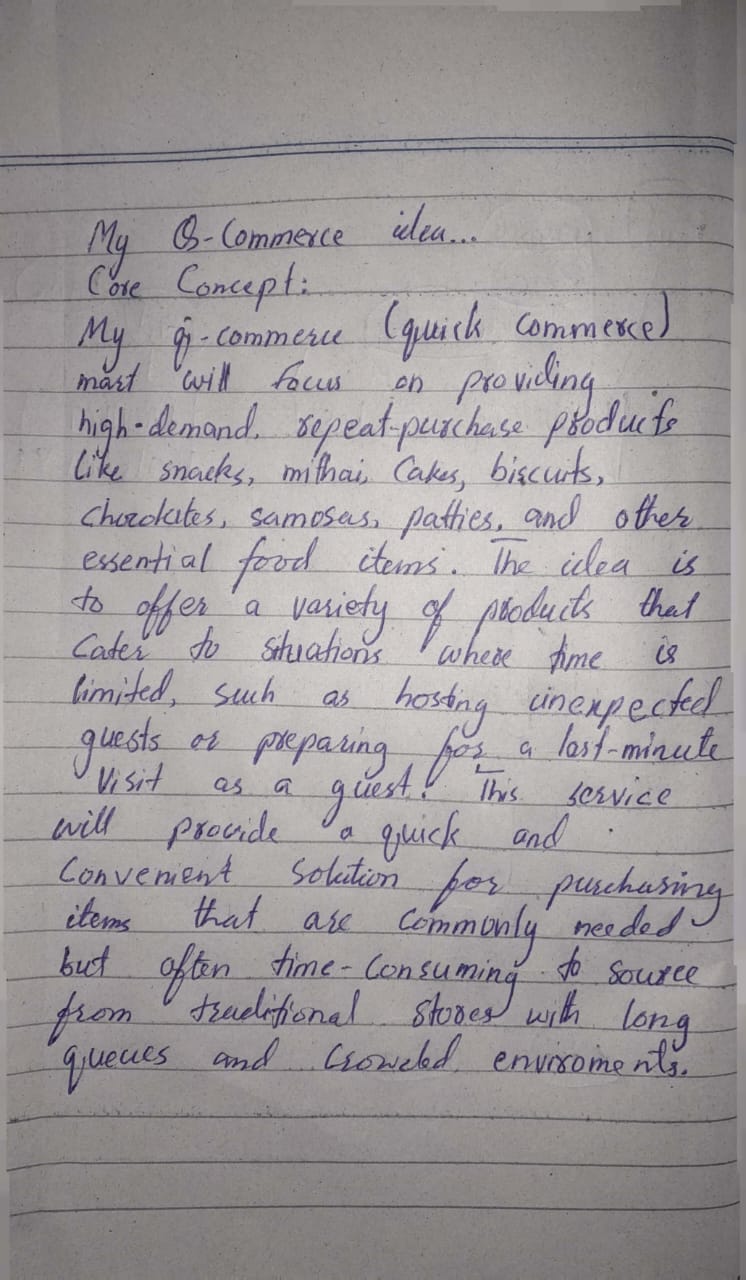 My Q-Commerce idea...
Core Concept:
My q-commerce (quick commerce)
mart will focus on providing
high-demand, repeat-purchase products
like snacks, mithai, Cakes, biscuits,
chocolates, samosas, patties, and other
essential food items. The idea is
to offer a variety of products that
Cater to situations where time is
limited, such as hosting unexpected
guests or preparing for a last-minute
Visit as a guest. This service
will provide a quick and
Convenient Solution for purchasing
items that are commonly needed
but often time-consuming to source
from traditional stores with long
queues and crowded enviroments.